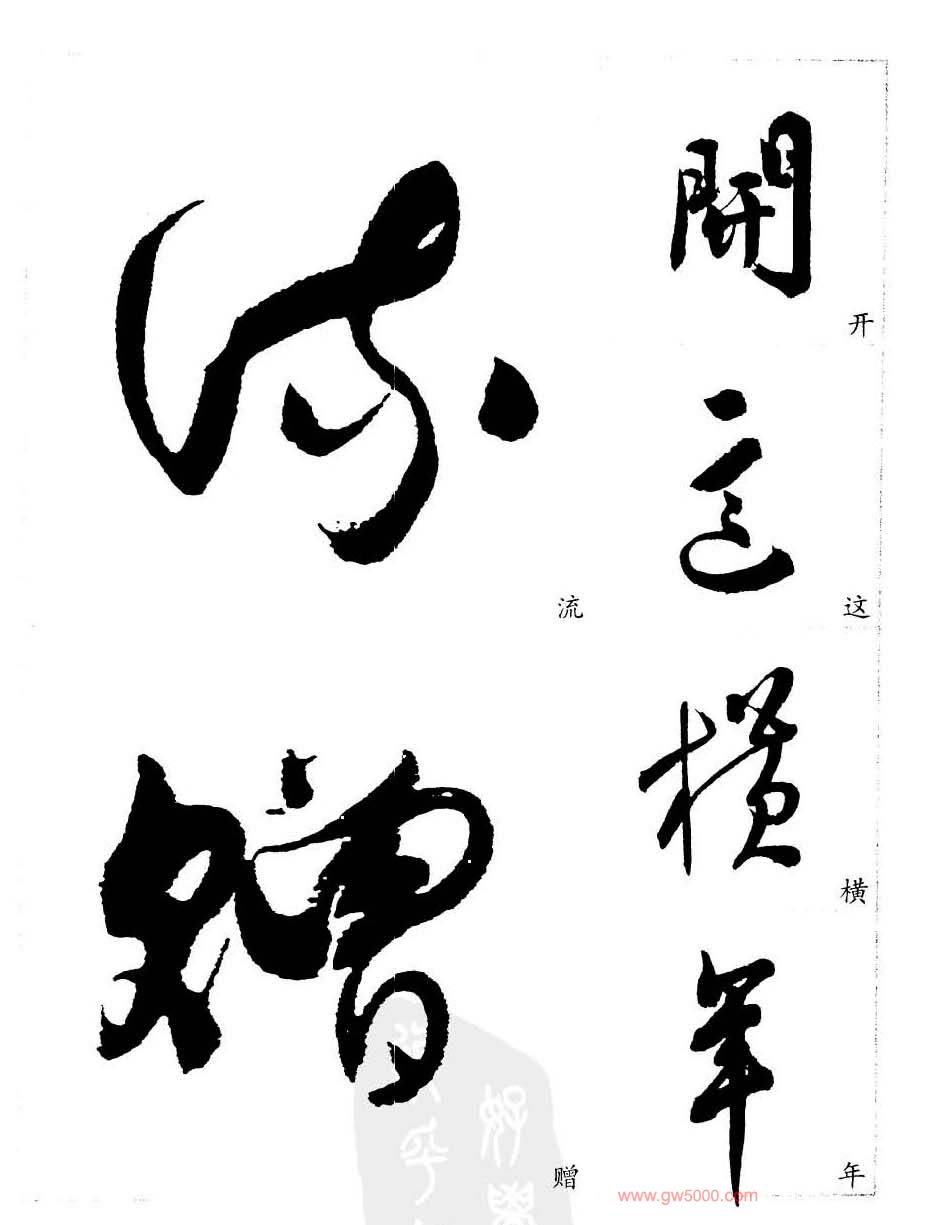 開
开
這
这
橫
横
年
年
流
流
贈
赠
www.gw5000.com